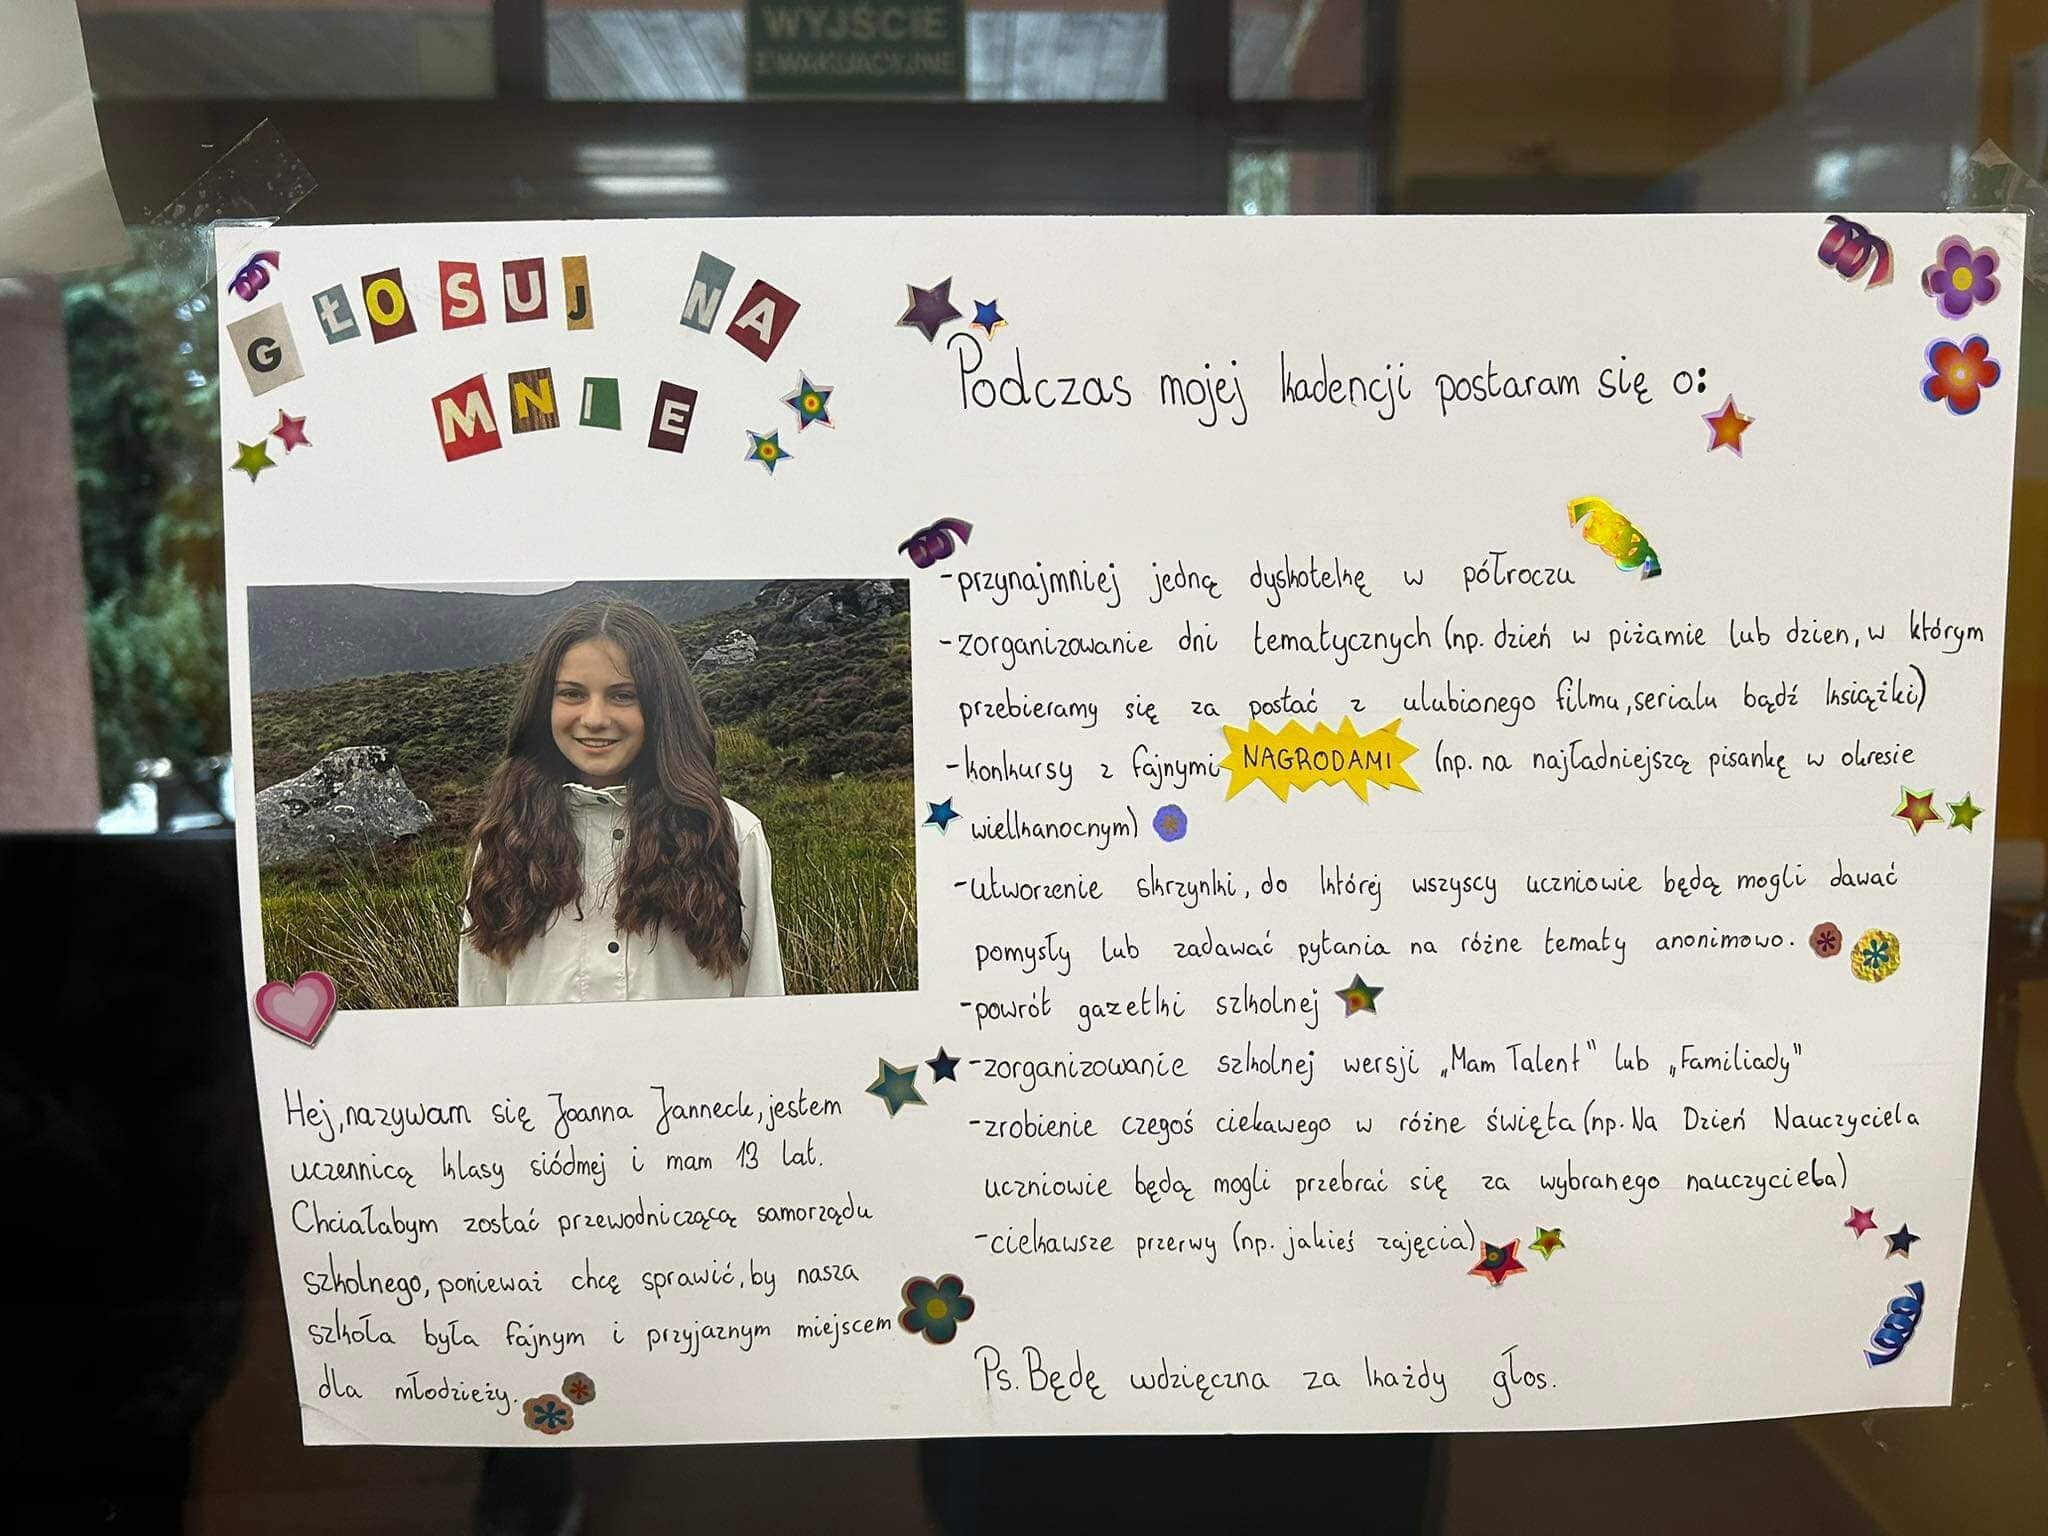 WYJŚCIE
EWAKUACYJNE
GŁOSUJ NA
MNIE
Hej, nazywam się Joanna Janneck, jestem
uczennicą klasy siódmej i mam 13 lat.
Chciałabym zostać przewodniczącą samorządu
szkolnego, ponieważ chcę sprawić, by nasza
szkoła była fajnym i przyjaznym miejscem
dla młodzieży.
Podczas mojej kadencji postaram się o:
-przynajmniej jedną dyskotekę w półroczu
-zorganizowanie dni tematycznych (np. dzień w piżamie lub dzien, w którym
przebieramy się za postać z ulubionego filmu, serialu bądź książki)
-konkursy z fajnymi NAGRODAMI (np. na najładniejszą pisankę w okresie
wielkanocnym)
-utworzenie skrzynki, do której wszyscy uczniowie będą mogli dawać
pomysły lub zadawać pytania na różne tematy anonimowo.
-powrót gazetki szkolnej
-zorganizowanie szkolnej wersji „Mam Talent" lub „Familiady"
-zrobienie czegoś ciekawego w różne święta (np. Na Dzień Nauczyciela
uczniowie będą mogli przebrać się za wybranego nauczyciela)
-ciekawsze przerwy (np. jakieś zajęcia)
Ps. Będę wdzięczna za każdy głos.